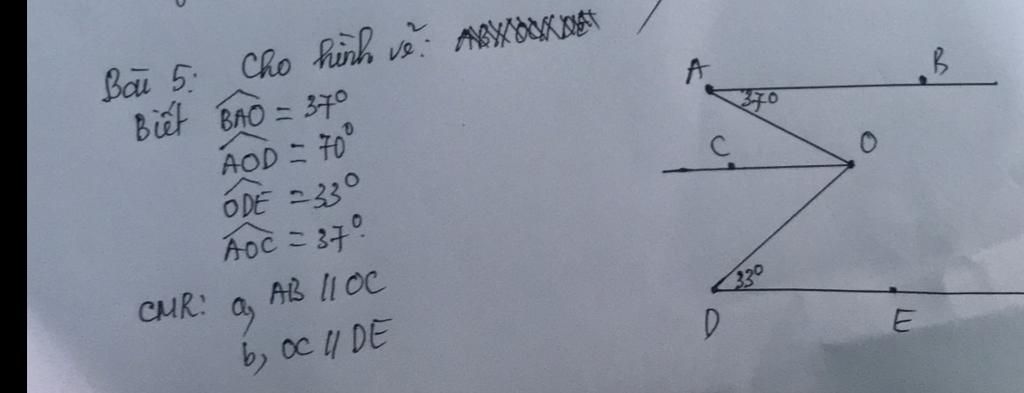 Bài 5: Cho hình vẽ:
Biết BAO = 37°
AOD = 70°
ODE = 33°
AOC = 37°.
CMR: a, AB // OC
b, OC // DE
A
B
37°
C
O
33°
D
E